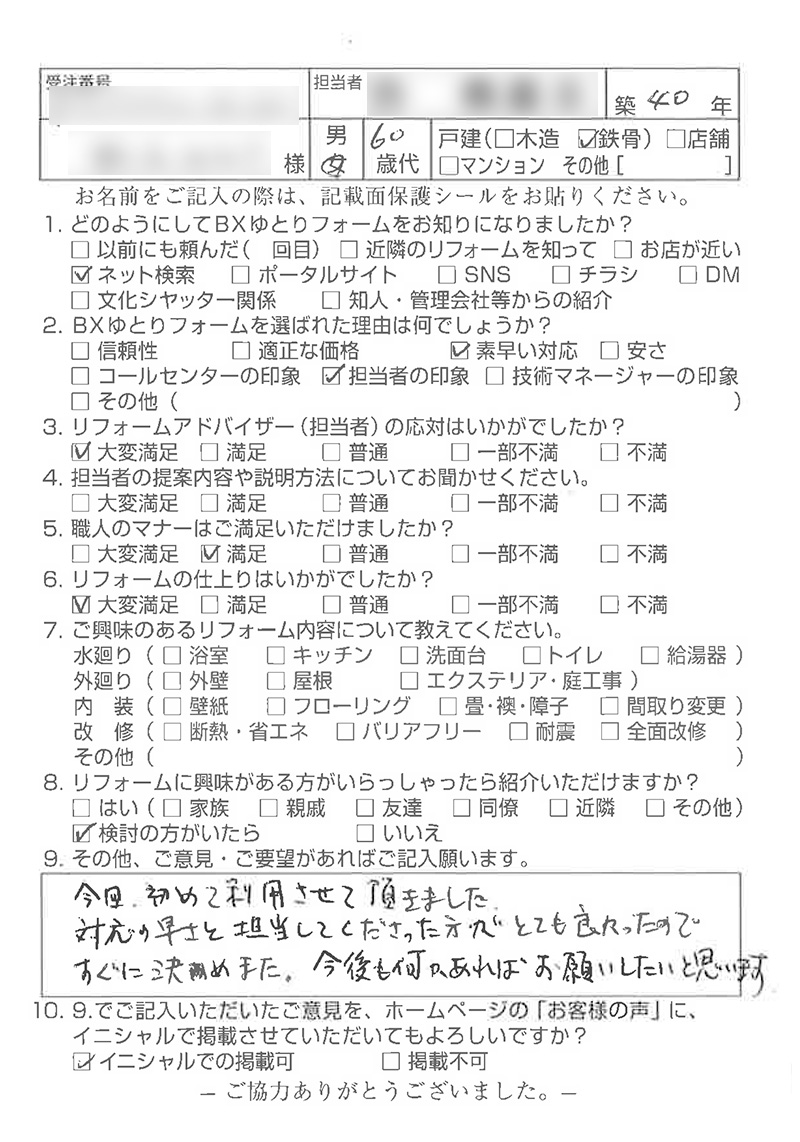 受注番号 担当者 築 40 年
様 男 女 60 歳代 戸建(□木造 ☑鉄骨) □店舗
□マンション その他 [ ]
お名前をご記入の際は、記載面保護シールをお貼りください。
1. どのようにしてBXゆとりフォームをお知りになりましたか？
□ 以前にも頼んだ( 回目) □ 近隣のリフォームを知って □ お店が近い
☑ ネット検索 □ ポータルサイト □ SNS □ チラシ □ DM
□ 文化シヤッター関係 □ 知人・管理会社等からの紹介
2. BXゆとりフォームを選ばれた理由は何でしょうか？
□ 信頼性 □ 適正な価格 ☑ 素早い対応 □ 安さ
□ コールセンターの印象 ☑ 担当者の印象 □ 技術マネージャーの印象
□ その他 ( )
3. リフォームアドバイザー(担当者)の応対はいかがでしたか？
☑ 大変満足 □ 満足 □ 普通 □ 一部不満 □ 不満
4. 担当者の提案内容や説明方法についてお聞かせください。
□ 大変満足 □ 満足 □ 普通 □ 一部不満 □ 不満
5. 職人のマナーはご満足いただけましたか？
□ 大変満足 ☑ 満足 □ 普通 □ 一部不満 □ 不満
6. リフォームの仕上りはいかがでしたか？
☑ 大変満足 □ 満足 □ 普通 □ 一部不満 □ 不満
7. ご興味のあるリフォーム内容について教えてください。
水廻り ( □ 浴室 □ キッチン □ 洗面台 □トイレ □ 給湯器 )
外廻り ( □ 外壁 □ 屋根 □ エクステリア・庭工事 )
内 装 ( □ 壁紙 □ フローリング □ 畳・襖・障子 □ 間取り変更 )
改 修 ( □ 断熱・省エネ □ バリアフリー □ 耐震 □ 全面改修 )
その他 ( )
8. リフォームに興味がある方がいらっしゃったら紹介いただけますか？
□ はい ( □ 家族 □ 親戚 □ 友達 □ 同僚 □ 近隣 □ その他)
☑ 検討の方がいたら □ いいえ
9. その他、ご意見・ご要望があればご記入願います。
今回、初めて利用させて頂きました
対応の早さと担当してくださった方がとても良かったので
すぐに決めました。今後も何かあればお願いしたいと思います
10. 9.でご記入いただいたご意見を、ホームページの「お客様の声」に、
イニシャルで掲載させていただいてもよろしいですか？
☑ イニシャルでの掲載可 □ 掲載不可
－ ご協力ありがとうございました。－